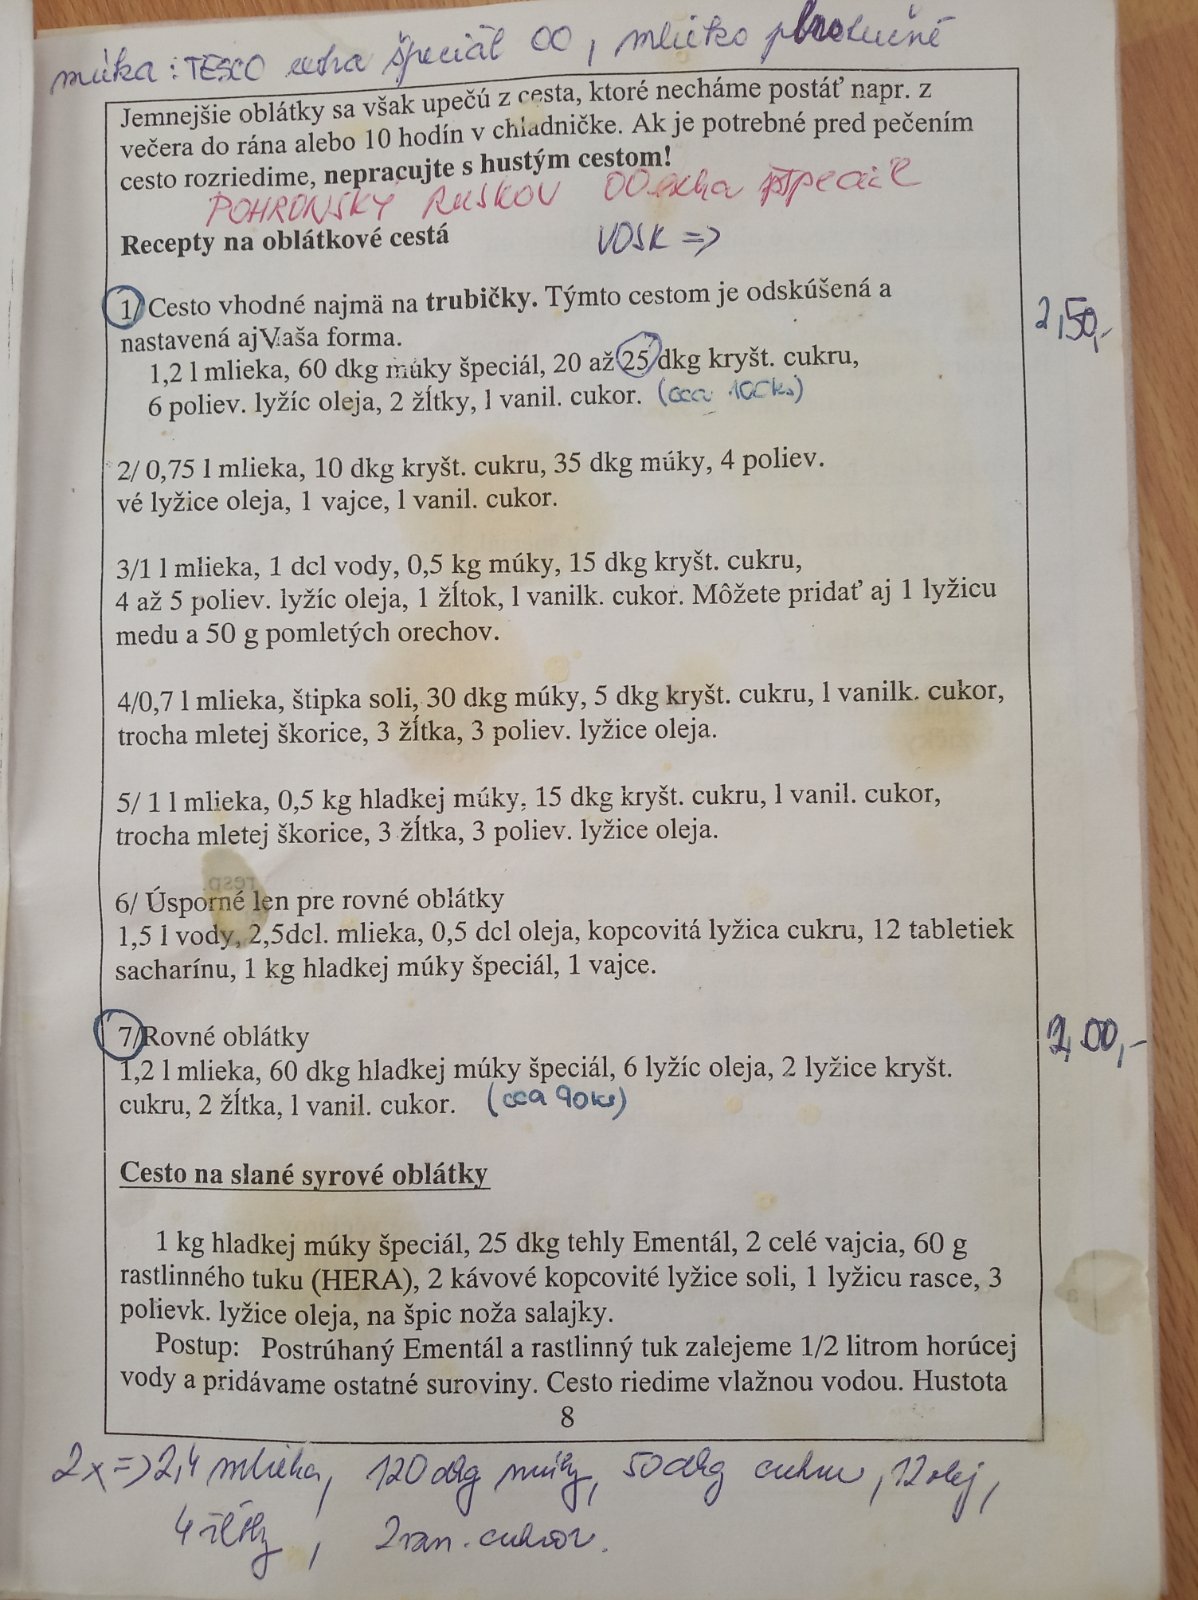 múka: TESCO extra špeciál 00, mlieko plnotučné
Jemnejšie oblátky sa však upečú z cesta, ktoré necháme postáť napr. z
večera do rána alebo 10 hodín v chladničke. Ak je potrebné pred pečením
cesto rozriedime, nepracujte s hustým cestom!
POHRONSKÝ RUSKOV 00 extra špeciál
Recepty na oblátkové cestá
VOSK =>
1/ Cesto vhodné najmä na trubičky. Týmto cestom je odskúšená a
nastavená aj Vaša forma.
2,50,-
1,2 l mlieka, 60 dkg múky špeciál, 20 až 25 dkg kryšt. cukru,
6 poliev. lyžíc oleja, 2 žĺtky, 1 vanil. cukor. (cca 100ks)
2/ 0,75 l mlieka, 10 dkg kryšt. cukru, 35 dkg múky, 4 poliev.
vé lyžice oleja, 1 vajce, 1 vanil. cukor.
3/1 l mlieka, 1 dcl vody, 0,5 kg múky, 15 dkg kryšt. cukru,
4 až 5 poliev. lyžíc oleja, 1 žĺtok, 1 vanilk. cukor. Môžete pridať aj 1 lyžicu
medu a 50 g pomletých orechov.
4/0,7 l mlieka, štipka soli, 30 dkg múky, 5 dkg kryšt. cukru, 1 vanilk. cukor,
trocha mletej škorice, 3 žĺtka, 3 poliev. lyžice oleja.
5/ 1 l mlieka, 0,5 kg hladkej múky, 15 dkg kryšt. cukru, 1 vanil. cukor,
trocha mletej škorice, 3 žĺtka, 3 poliev. lyžice oleja.
6/ Úsporné len pre rovné oblátky
1,5 l vody, 2,5dcl. mlieka, 0,5 dcl oleja, kopcovitá lyžica cukru, 12 tabletiek
sacharínu, 1 kg hladkej múky špeciál, 1 vajce.
7/ Rovné oblátky
2,00,-
1,2 l mlieka, 60 dkg hladkej múky špeciál, 6 lyžíc oleja, 2 lyžice kryšt.
cukru, 2 žĺtka, 1 vanil. cukor. (cca 90ks)
Cesto na slané syrové oblátky
1 kg hladkej múky špeciál, 25 dkg tehly Ementál, 2 celé vajcia, 60 g
rastlinného tuku (HERA), 2 kávové kopcovité lyžice soli, 1 lyžicu rasce, 3
polievk. lyžice oleja, na špic noža salajky.
Postup: Postrúhaný Ementál a rastlinný tuk zalejeme 1/2 litrom horúcej
vody a pridávame ostatné suroviny. Cesto riedime vlažnou vodou. Hustota
8
2x => 2,4 mlieka, 120 dkg múky, 50 dkg cukru, 12 olej,
4 žĺtky, 2 van. cukor.